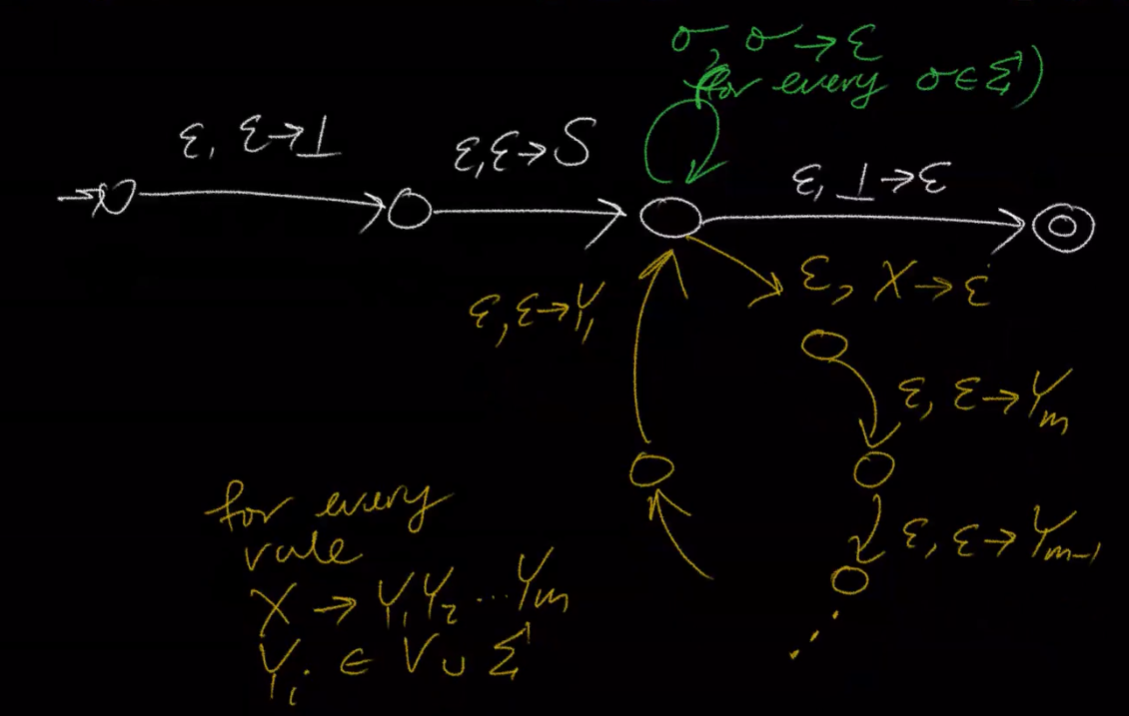 σ, σ → ε
(for every σ ∈ Σ)
ε, ε → ⊥
ε, ε → S
ε, ⊥ → ε
ε, X → ε
ε, ε → Y₁
ε, ε → Yₘ
ε, ε → Yₘ₋₁
for every
rule
X → Y₁ Y₂ ... Yₘ
Yᵢ ∈ V ∪ Σ